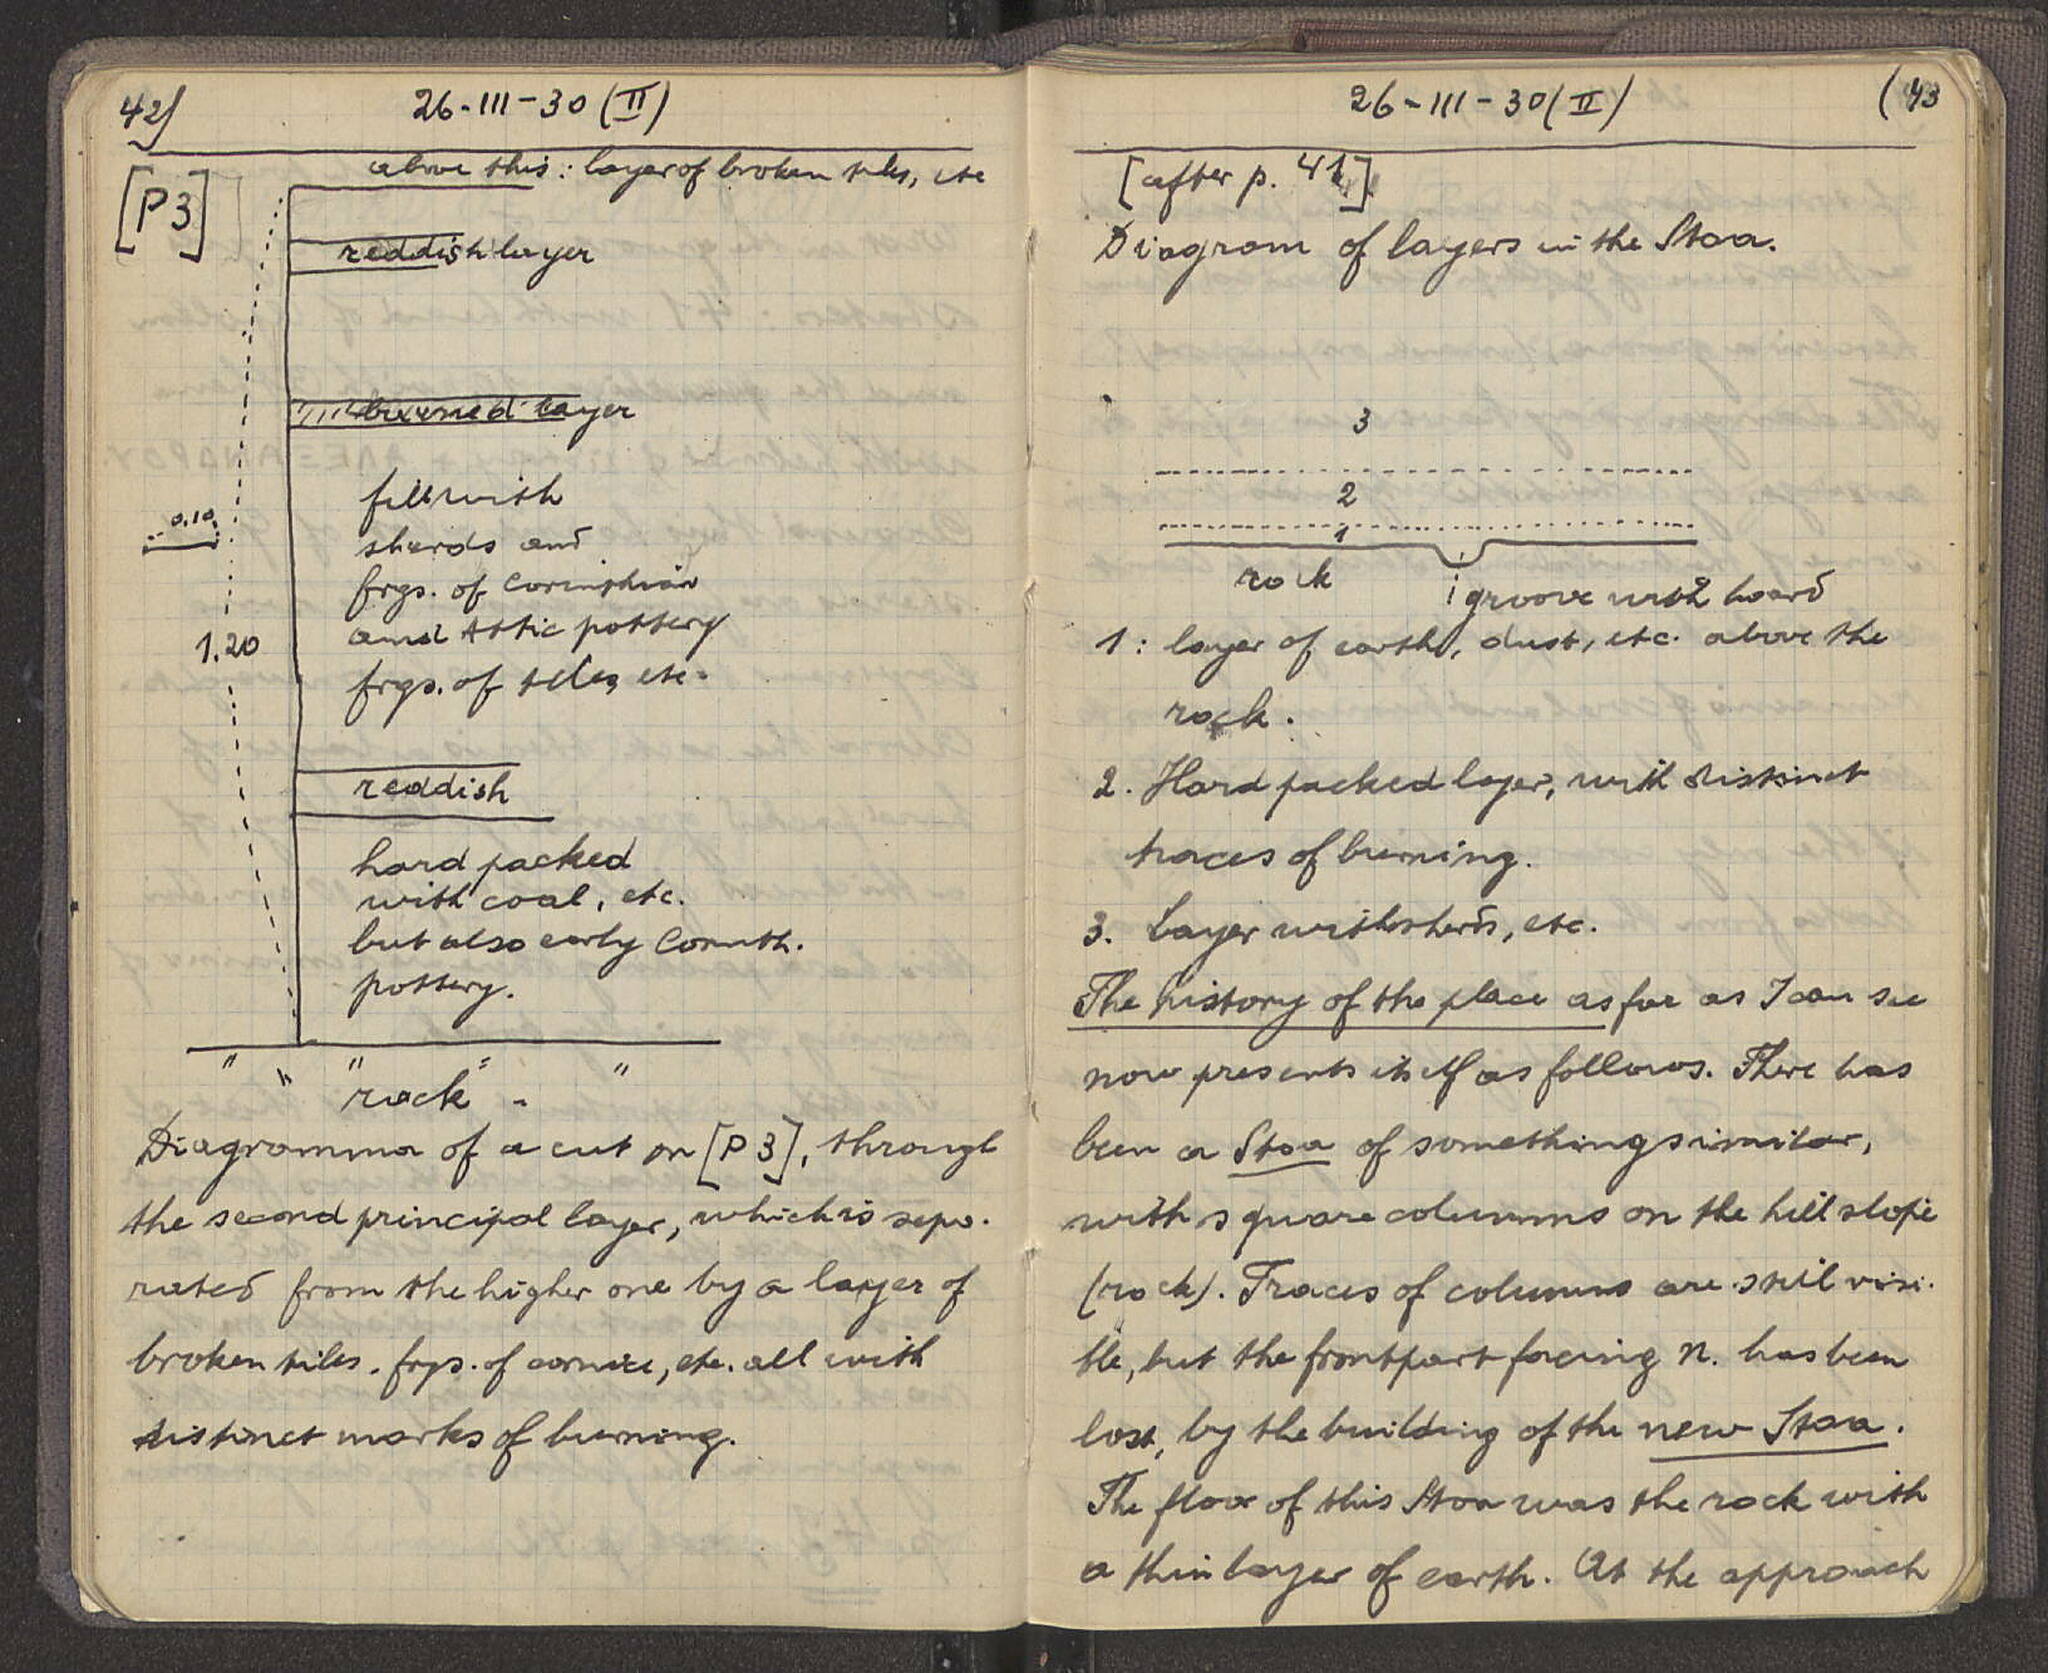 42)
26-III-30 (II)
[P3]
above this: layer of broken tiles, etc
reddish layer
burned layer
fill with
sherds and
0.10
frgs. of Corinthian
1.20
and Attic pottery
frgs. of tiles, etc.
reddish
hard packed
with coal, etc.
but also early Corinth.
pottery.
" " " " "
rock
Diagramma of a cut on [P3], through
the second principal layer, which is sepa-
rated from the higher one by a layer of
broken tiles, frgs. of cornice, etc. all with
distinct marks of burning.
26-III-30 (II)
(43
[after p. 41]
Diagram of layers in the Stoa.
3
2
1
rock
groove with hoard
1: layer of earth, dust, etc. above the
rock.
2. Hard packed layer, with distinct
traces of burning.
3. Layer with sherds, etc.
The history of the place as far as I can see
now presents itself as follows. There has
been a Stoa of something similar,
with square columns on the hill slope
(rock). Traces of columns are still visi-
ble, but the frontpart facing N. has been
lost, by the building of the new Stoa.
The floor of this Stoa was the rock with
a thin layer of earth. At the approach